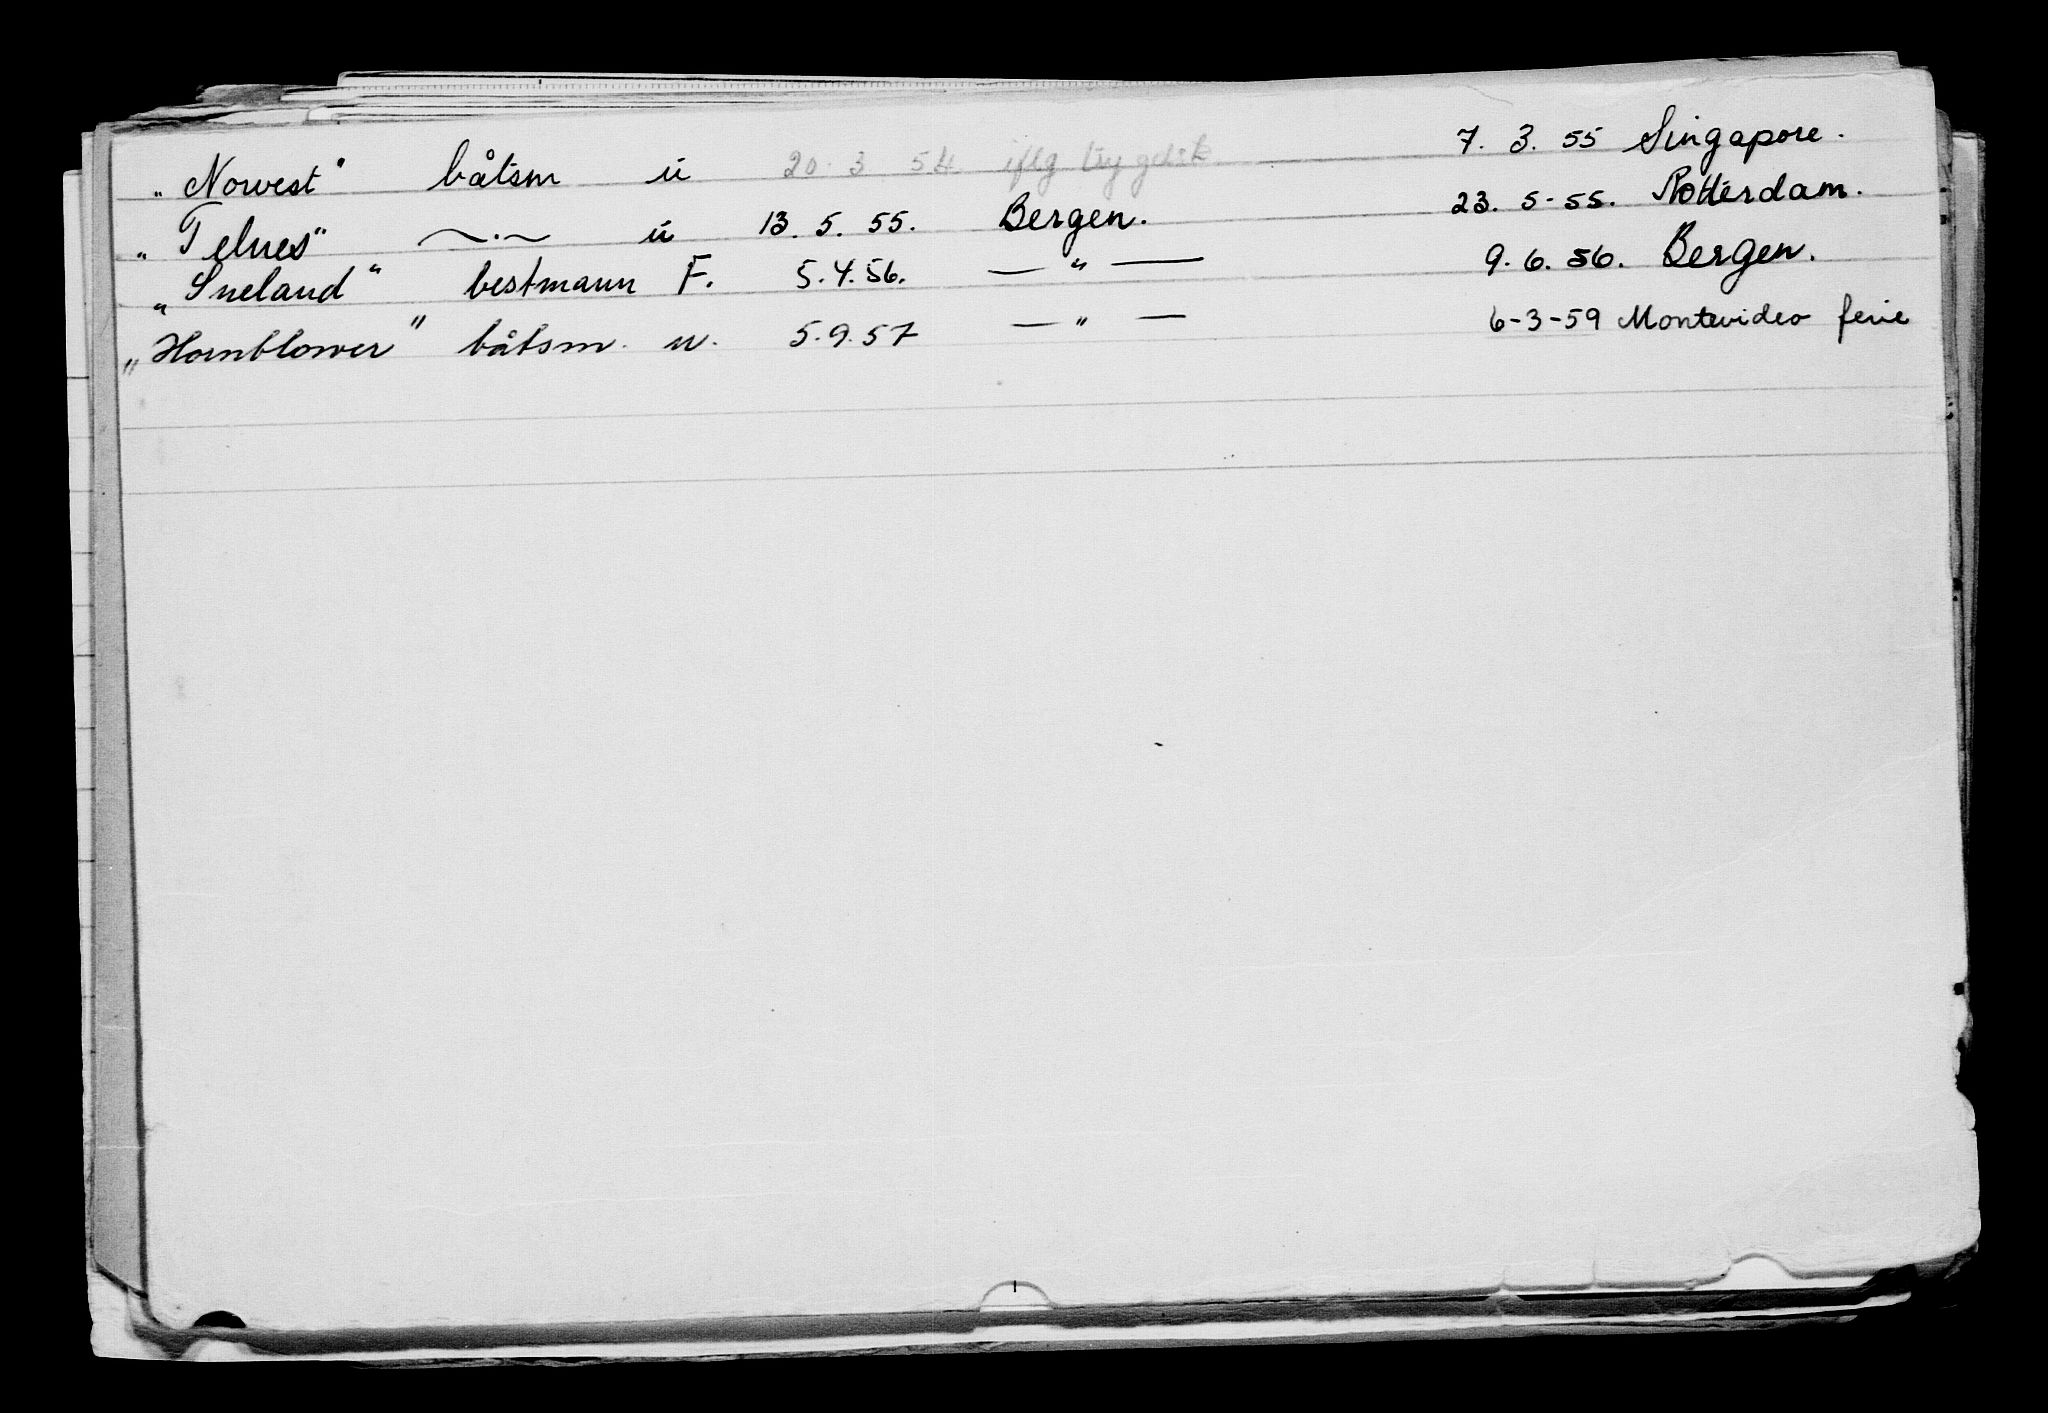 „Norvest" båtsm ŭ 20.3 54 iflg trygdsk 7. 3. 55 Singapore.
„Telnes" —.— ŭ 13. 5. 55. Bergen. 23. 5-55. Rotterdam.
„Sneland" bestmann F. 5.4.56. — " — 9. 6. 56. Bergen.
„Hornblower" båtsm. u. 5.9.57 — " — 6-3-59 Montevideo ferie